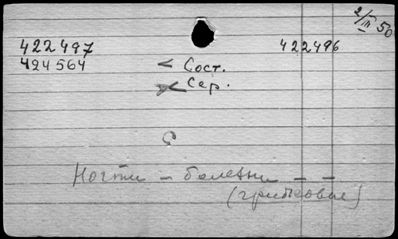 2/III 50
422497 422496
424564 < Сост.
< Сер.
Ногти - болезни - -
(грибковые)